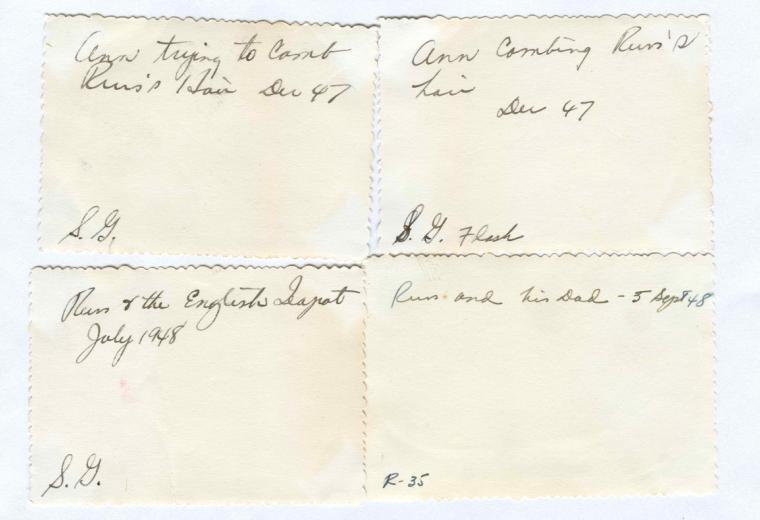 Ann trying to Comb
Russ's Hair Dec 47
S. G.
Ann Combing Russ's
hair
Dec 47
S. G. Flash
Russ & the English
July 1948
S. G.
Russ and his Dad - 5 Sept 48
R-35